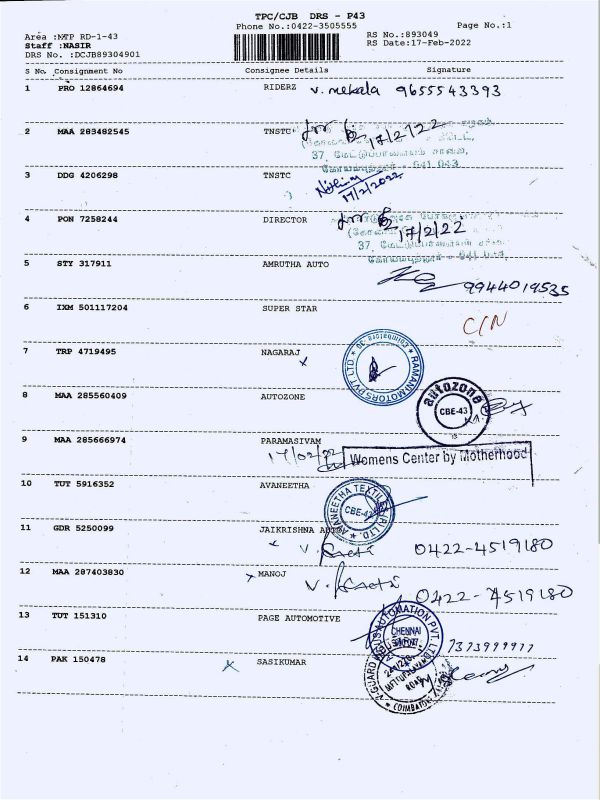 TPC/CJB DRS - P43
Phone No.:0422-3505555
Page No.:1
Area :MTP RD-1-43
Staff :NASIR
DRS No. :DCJB89304901
RS No.:893049
RS Date:17-Feb-2022
S No. Consignment No Consignee Details Signature
1 PRO 12864694 RIDERZ V. mekala 9655543393
2 MAA 283482545 TNSTC 17/2/22
37, மேட்டுப்பாளையம் சாலை,
கோயமுத்தூர் - 641 043
3 DDG 4206298 TNSTC Nithin
17/2/2022
4 PON 7258244 DIRECTOR 17/2/22
37, மேட்டுப்பாளையம்
5 STY 317911 AMRUTHA AUTO
9944019535
6 IXM 501117204 SUPER STAR
C/N
7 TRP 4719495 NAGARAJ x
RAMAN MOTORS PVT LTD
8 MAA 285560409 AUTOZONE
autozone
CBE-43
9 MAA 285666974 PARAMASIVAM
17/02/22
Womens Center by Motherhood
10 TUT 5916352 AVANEETHA
AVANEETHA TEXTILES (P) LTD.
CBE-43
11 GDR 5250099 JAIKRISHNA AUTO
0422-4519180
12 MAA 287403830 x MANOJ
0422-4519180
13 TUT 151310 PAGE AUTOMOTIVE
AUTOMATION PVT. LTD
CHENNAI
7373999977
14 PAK 150478 x SASIKUMAR
ROAD
COIMBATORE